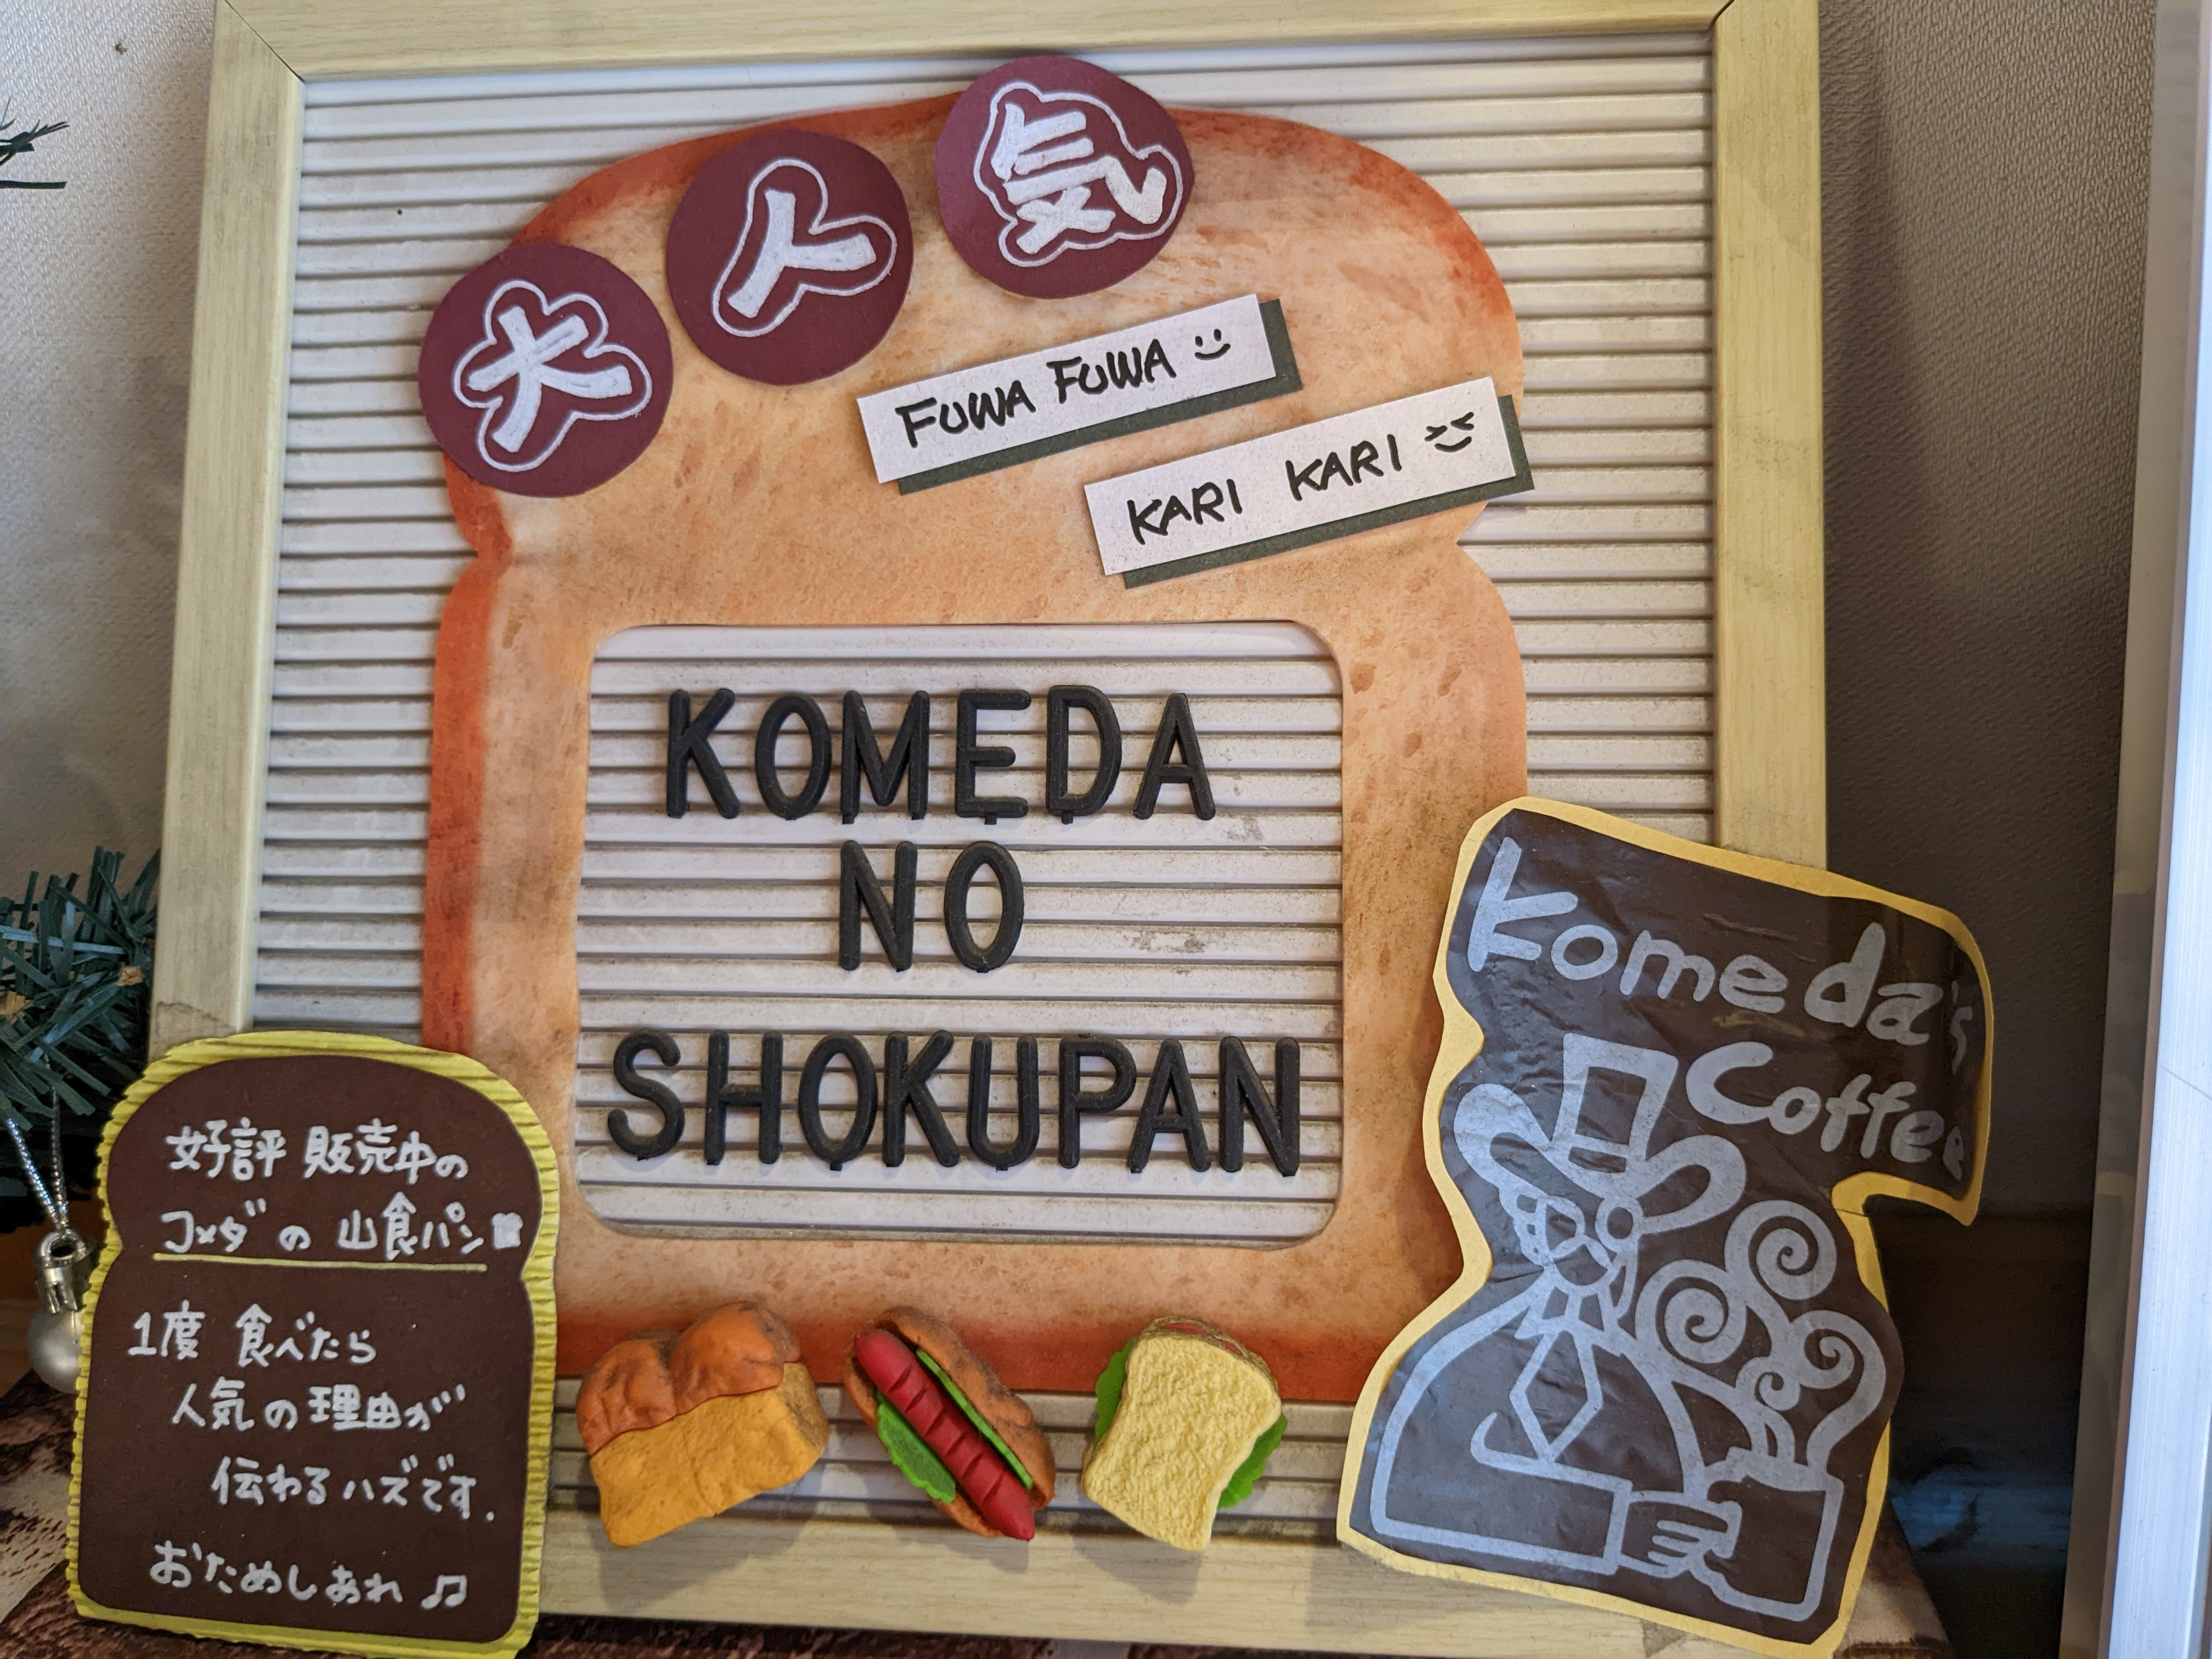 大人気
FUWA FUWA
KARI KARI
KOMEDA
NO
SHOKUPAN
好評 販売中の
コメダの 山食パン
1度 食べたら
人気の理由が
伝わるハズです.
おためしあれ♫
Komeda's
Coffee